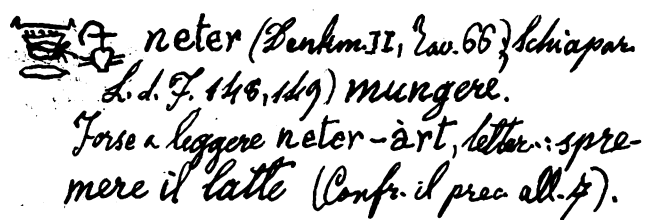 neter (Denkm. II, Tav. 66; Schiapar.
L. d. F. 148, 149) mungere.
Forse a leggere neter-àrt, letter.: spre-
mere il latte (Confr. il prec. all. 4).